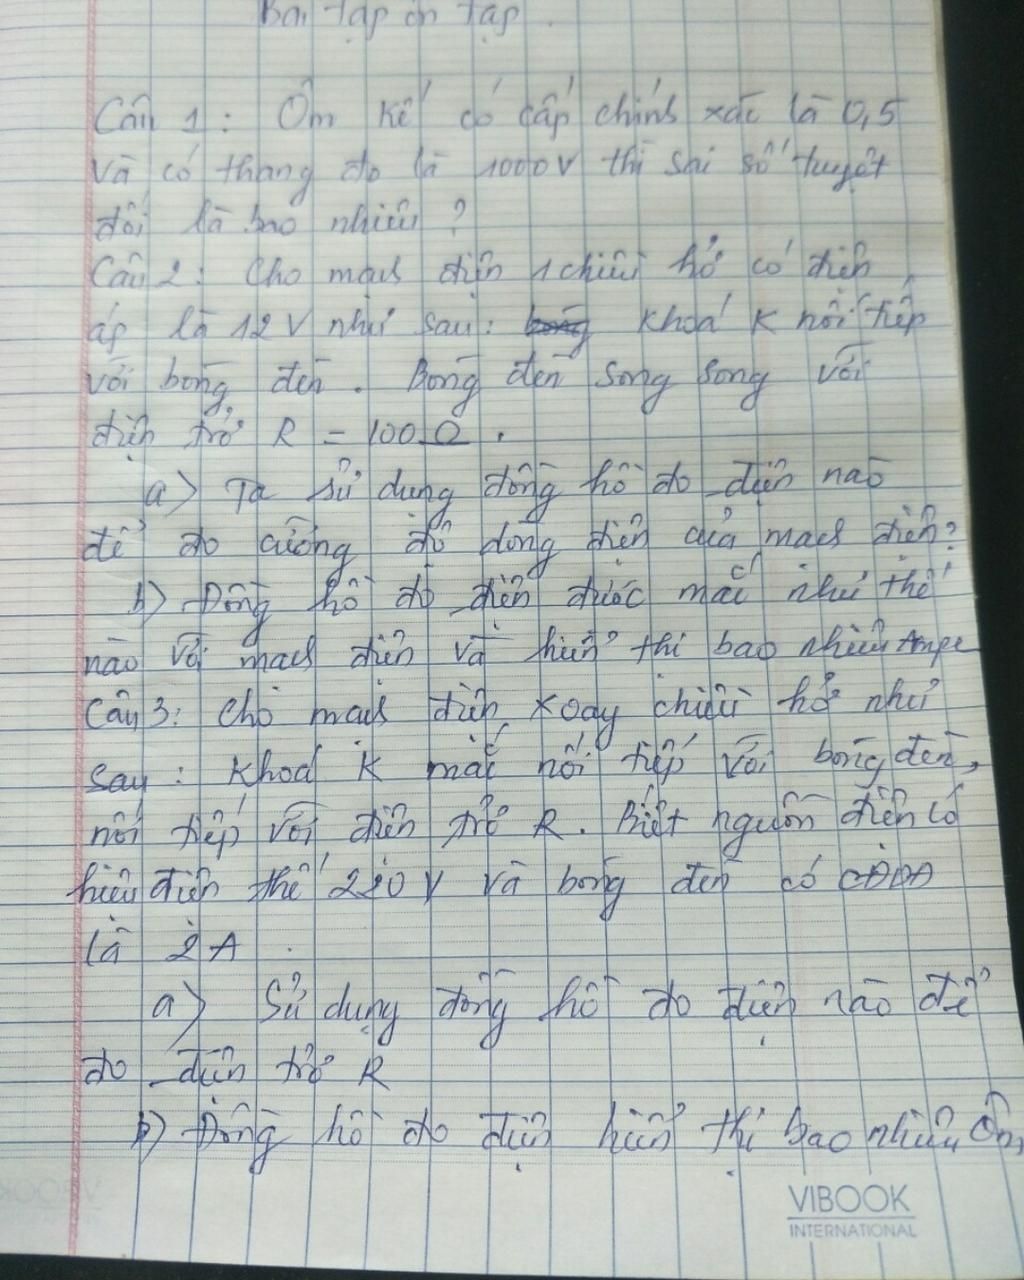 Bài tập ôn tập.
Câu 1: Ôm kế có cấp chính xác là 0,5
và có thang đo là 1000V thì sai số tuyệt
đối là bao nhiêu?
Câu 2: Cho mạch điện 1 chiều hở có điện
áp là 12V như sau: khoá K nối tiếp
với bóng đèn. Bóng đèn song song với
điện trở R = 100Ω.
a) Ta sử dụng đồng hồ đo điện nào
để đo cường độ dòng điện của mạch điện?
b) Đồng hồ đo điện được mắc như thế
nào với mạch điện và hiển thị bao nhiêu Ampe
Câu 3: Cho mạch điện xoay chiều hở như
sau: Khoá K mắc nối tiếp với bóng đèn,
nối tiếp với điện trở R. Biết nguồn điện có
hiệu điện thế 220V và bóng đèn có CĐDĐ
là 2A.
a) Sử dụng đồng hồ đo điện nào để
đo điện trở R
b) Đồng hồ đo điện hiển thị bao nhiêu Ôm
VIBOOK
INTERNATIONAL